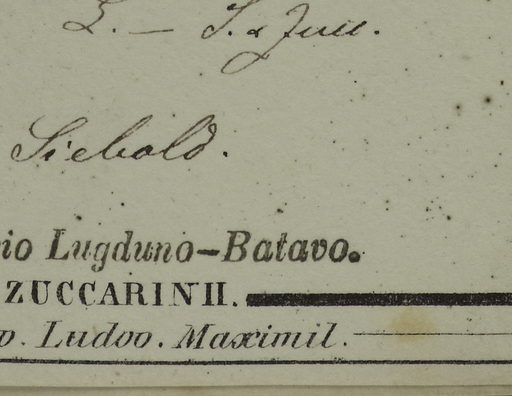 L. — S. & Zucc.
Siebold.
io Lugduno-Batavo.
ZUCCARINII.
p. Ludov. Maximil.